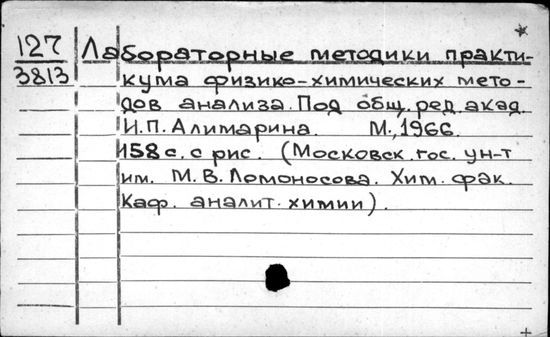 127
3813
Лабораторные методики практи-
кума физико-химических мето-
дов анализа. Под общ. ред. акад.
И.П. Алимарина. М., 1966.
158 с. с рис. (Московск. гос. ун-т
им. М. В. Ломоносова. Хим. фак.
Каф. аналит. химии).